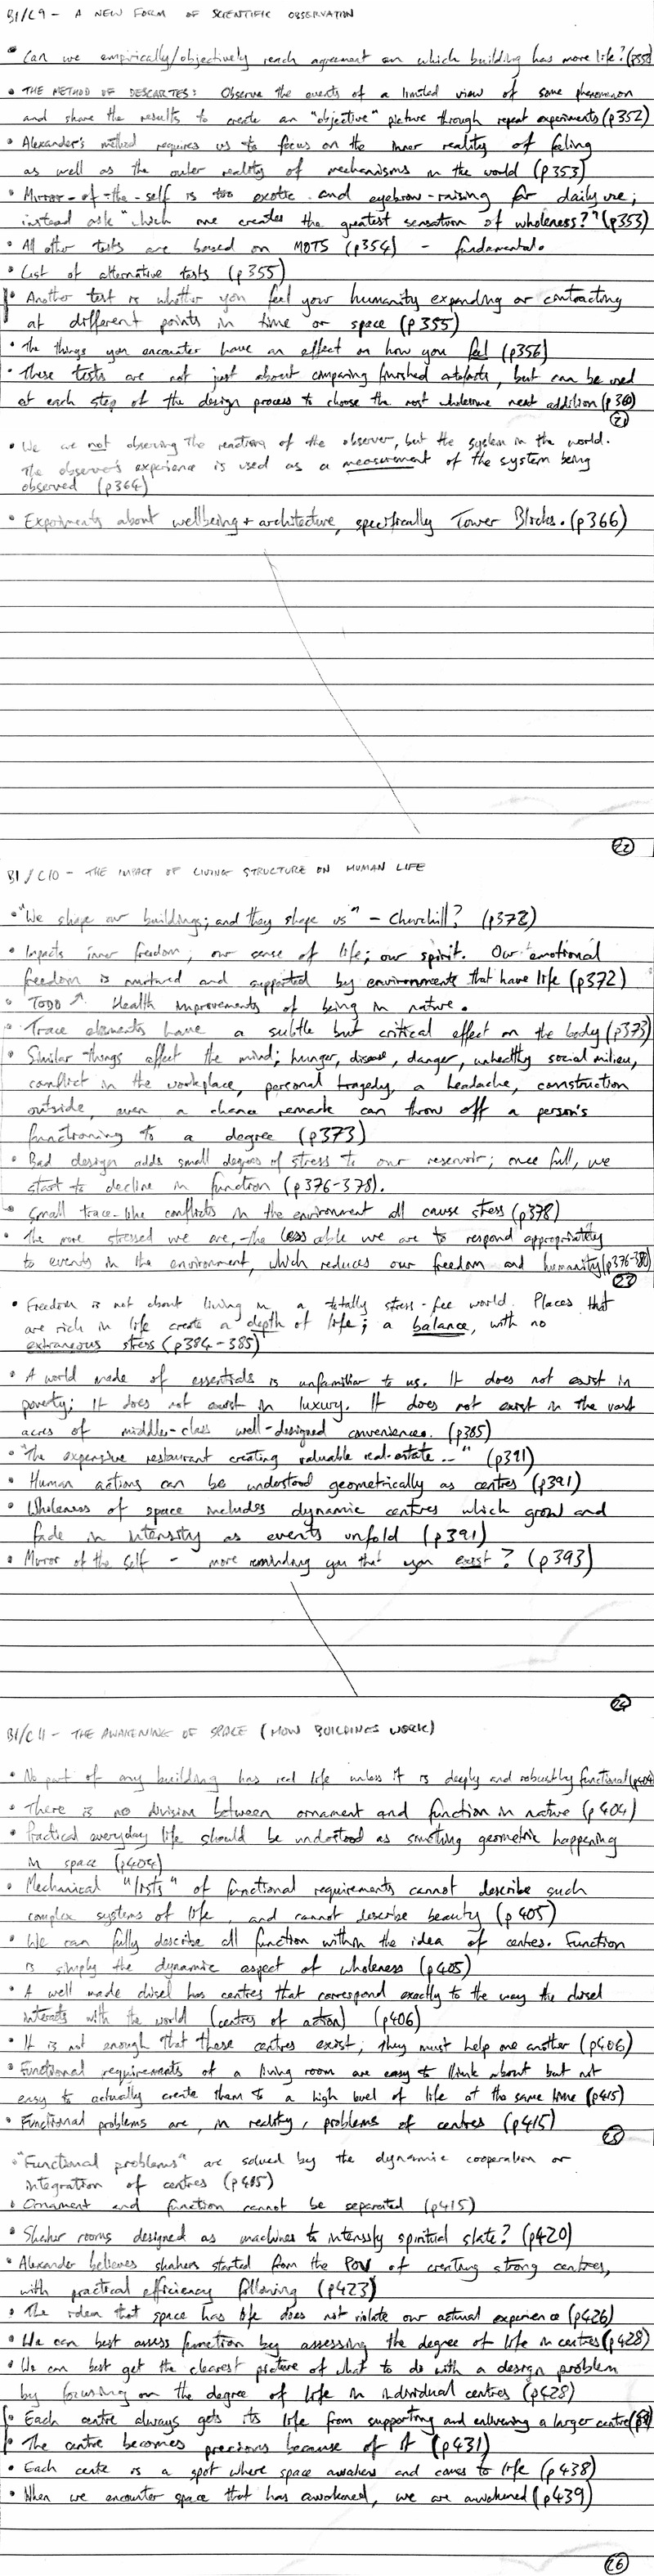 B1/C9 - A NEW FORM OF SCIENTIFIC OBSERVATION
• Can we empirically/objectively reach agreement on which building has more life? (p352)
• THE METHOD OF DESCARTES: Observe the events of a limited view of some phenomenon
and share the results to create an "objective" picture through repeat experiments (p352)
• Alexander's method requires us to focus on the inner reality of feeling
as well as the outer reality of mechanisms in the world (p353)
• Mirror-of-the-self is too exotic and eyebrow-raising for daily use;
instead ask "which one creates the greatest sensation of wholeness?" (p353)
• All other tests are based on MOTS (p354) - fundamental.
• List of alternative tests (p355)
• Another test is whether you feel your humanity expanding or contracting
at different points in time or space (p355)
• The things you encounter have an effect on how you feel (p356)
• These tests are not just about comparing finished artefacts, but can be used
at each step of the design process to choose the most wholesome next addition (p360)
21
• We are not observing the reaction of the observer, but the system in the world.
The observer's experience is used as a measurement of the system being
observed (p364)
• Experiments about wellbeing + architecture, specifically Tower Blocks. (p366)
22
B1/C10 - THE IMPACT OF LIVING STRUCTURE ON HUMAN LIFE
• "We shape our buildings; and they shape us" - Churchill? (p372)
• Impacts inner freedom; our sense of life; our spirit. Our emotional
freedom is nurtured and supported by environments that have life (p372)
• TODO ↑. Health improvements of being in nature.
• Trace elements have a subtle but critical effect on the body (p373)
• Similar things affect the mind; hunger, disease, danger, unhealthy social milieu,
conflict in the workplace, personal tragedy, a headache, construction
outside, even a chance remark can throw off a person's
functioning to a degree (p373)
• Bad design adds small degrees of stress to our reservoir; once full, we
start to decline in function (p376-378).
↳ Small trace-like conflicts in the environment all cause stress (p378)
• The more stressed we are, the less able we are to respond appropriately
to events in the environment, which reduces our freedom and humanity (p376-380)
23
• Freedom is not about living in a totally stress-free world. Places that
are rich in life create a depth of life; a balance, with no
extraneous stress (p384-385)
• A world made of essentials is unfamiliar to us. It does not exist in
poverty; It does not exist in luxury. It does not exist in the vast
acres of middle-class well-designed convenience. (p385)
• "The expensive restaurant creating valuable real-estate..." (p391)
• Human actions can be understood geometrically as centres (p391)
• Wholeness of space includes dynamic centres which grow and
fade in intensity as events unfold (p391)
• Mirror of the self - more reminding you that you exist? (p393)
24
B1/C11 - THE AWAKENING OF SPACE (HOW BUILDINGS WORK)
• No part of any building has real life unless it is deeply and robustly functional (p404)
• There is no division between ornament and function in nature (p404)
• Practical everyday life should be understood as something geometric happening
in space (p404)
• Mechanical "lists" of functional requirements cannot describe such
complex systems of life, and cannot describe beauty (p405)
• We can fully describe all function within the idea of centres. Function
is simply the dynamic aspect of wholeness (p405)
• A well made chisel has centres that correspond exactly to the way the chisel
interacts with the world (centres of action) (p406)
• It is not enough that these centres exist; they must help one another (p406)
• Functional requirements of a living room are easy to think about but not
easy to actually create them to a high level of life at the same time (p415)
• Functional problems are, in reality, problems of centres (p415)
25
• "Functional problems" are solved by the dynamic cooperation or
integration of centres (p415)
• Ornament and function cannot be separated (p415)
• Shaker rooms designed as machines to intensify spiritual state? (p420)
• Alexander believes shakers started from the POV of creating strong centres,
with practical efficiency following (p423)
• The idea that space has life does not violate our actual experience (p426)
• We can best assess function by assessing the degree of life in centres (p428)
• We can best get the clearest picture of what to do with a design problem
by focusing on the degree of life in individual centres (p428)
• Each centre always gets its life from supporting and enlivening a larger centre
• The centre becomes precious because of it (p431)
• Each centre is a spot where space awakens and comes to life (p438)
• When we encounter space that has awakened, we are awakened (p439)
26